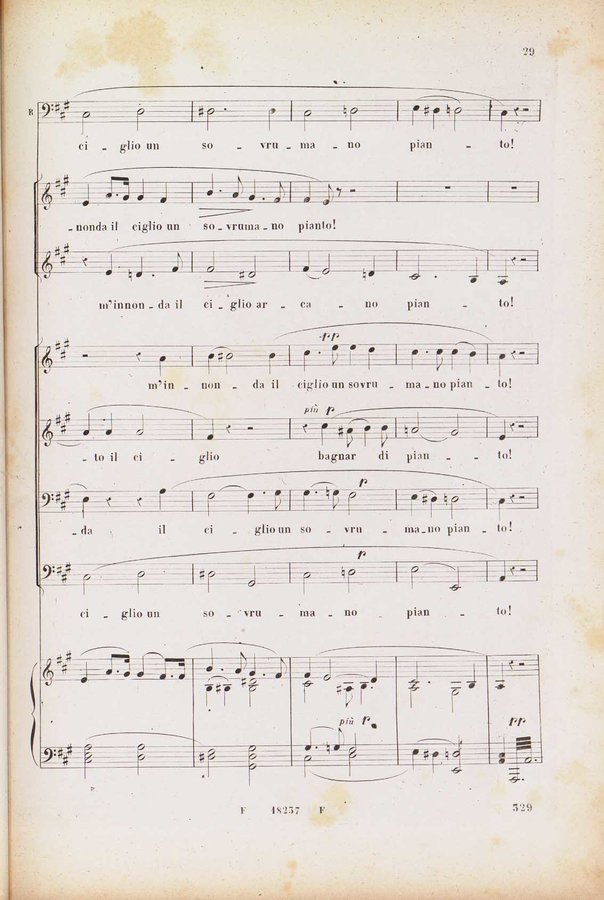 29
R
ci - glio un so - vru - ma - no pian - to!
- nonda il ciglio un so - vruma - no pianto!
m'innon - da il ci - glio ar - ca - no pian - to!
pp
m'in - non - da il ciglio un sovru - ma - no pian - to!
più p
- to il ci - glio bagnar di pian - to!
p
- da il ci - glio un so - vru - ma - no pian - to!
p
ci - glio un so - vru - ma - no pian - to!
più p
pp
P
F 18257 F 329